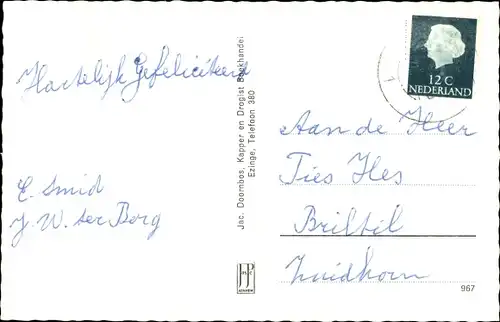 Hartelijk Gefeliciteerd
E. Smid
J. W. ter Borg
Jac. Doornbos, Kapper en Drogist Boekhandel
Ezinge, Telefoon 380
12 C
NEDERLAND
Aan de Heer
Ties Hes
Briltil
Zuidhorn
967